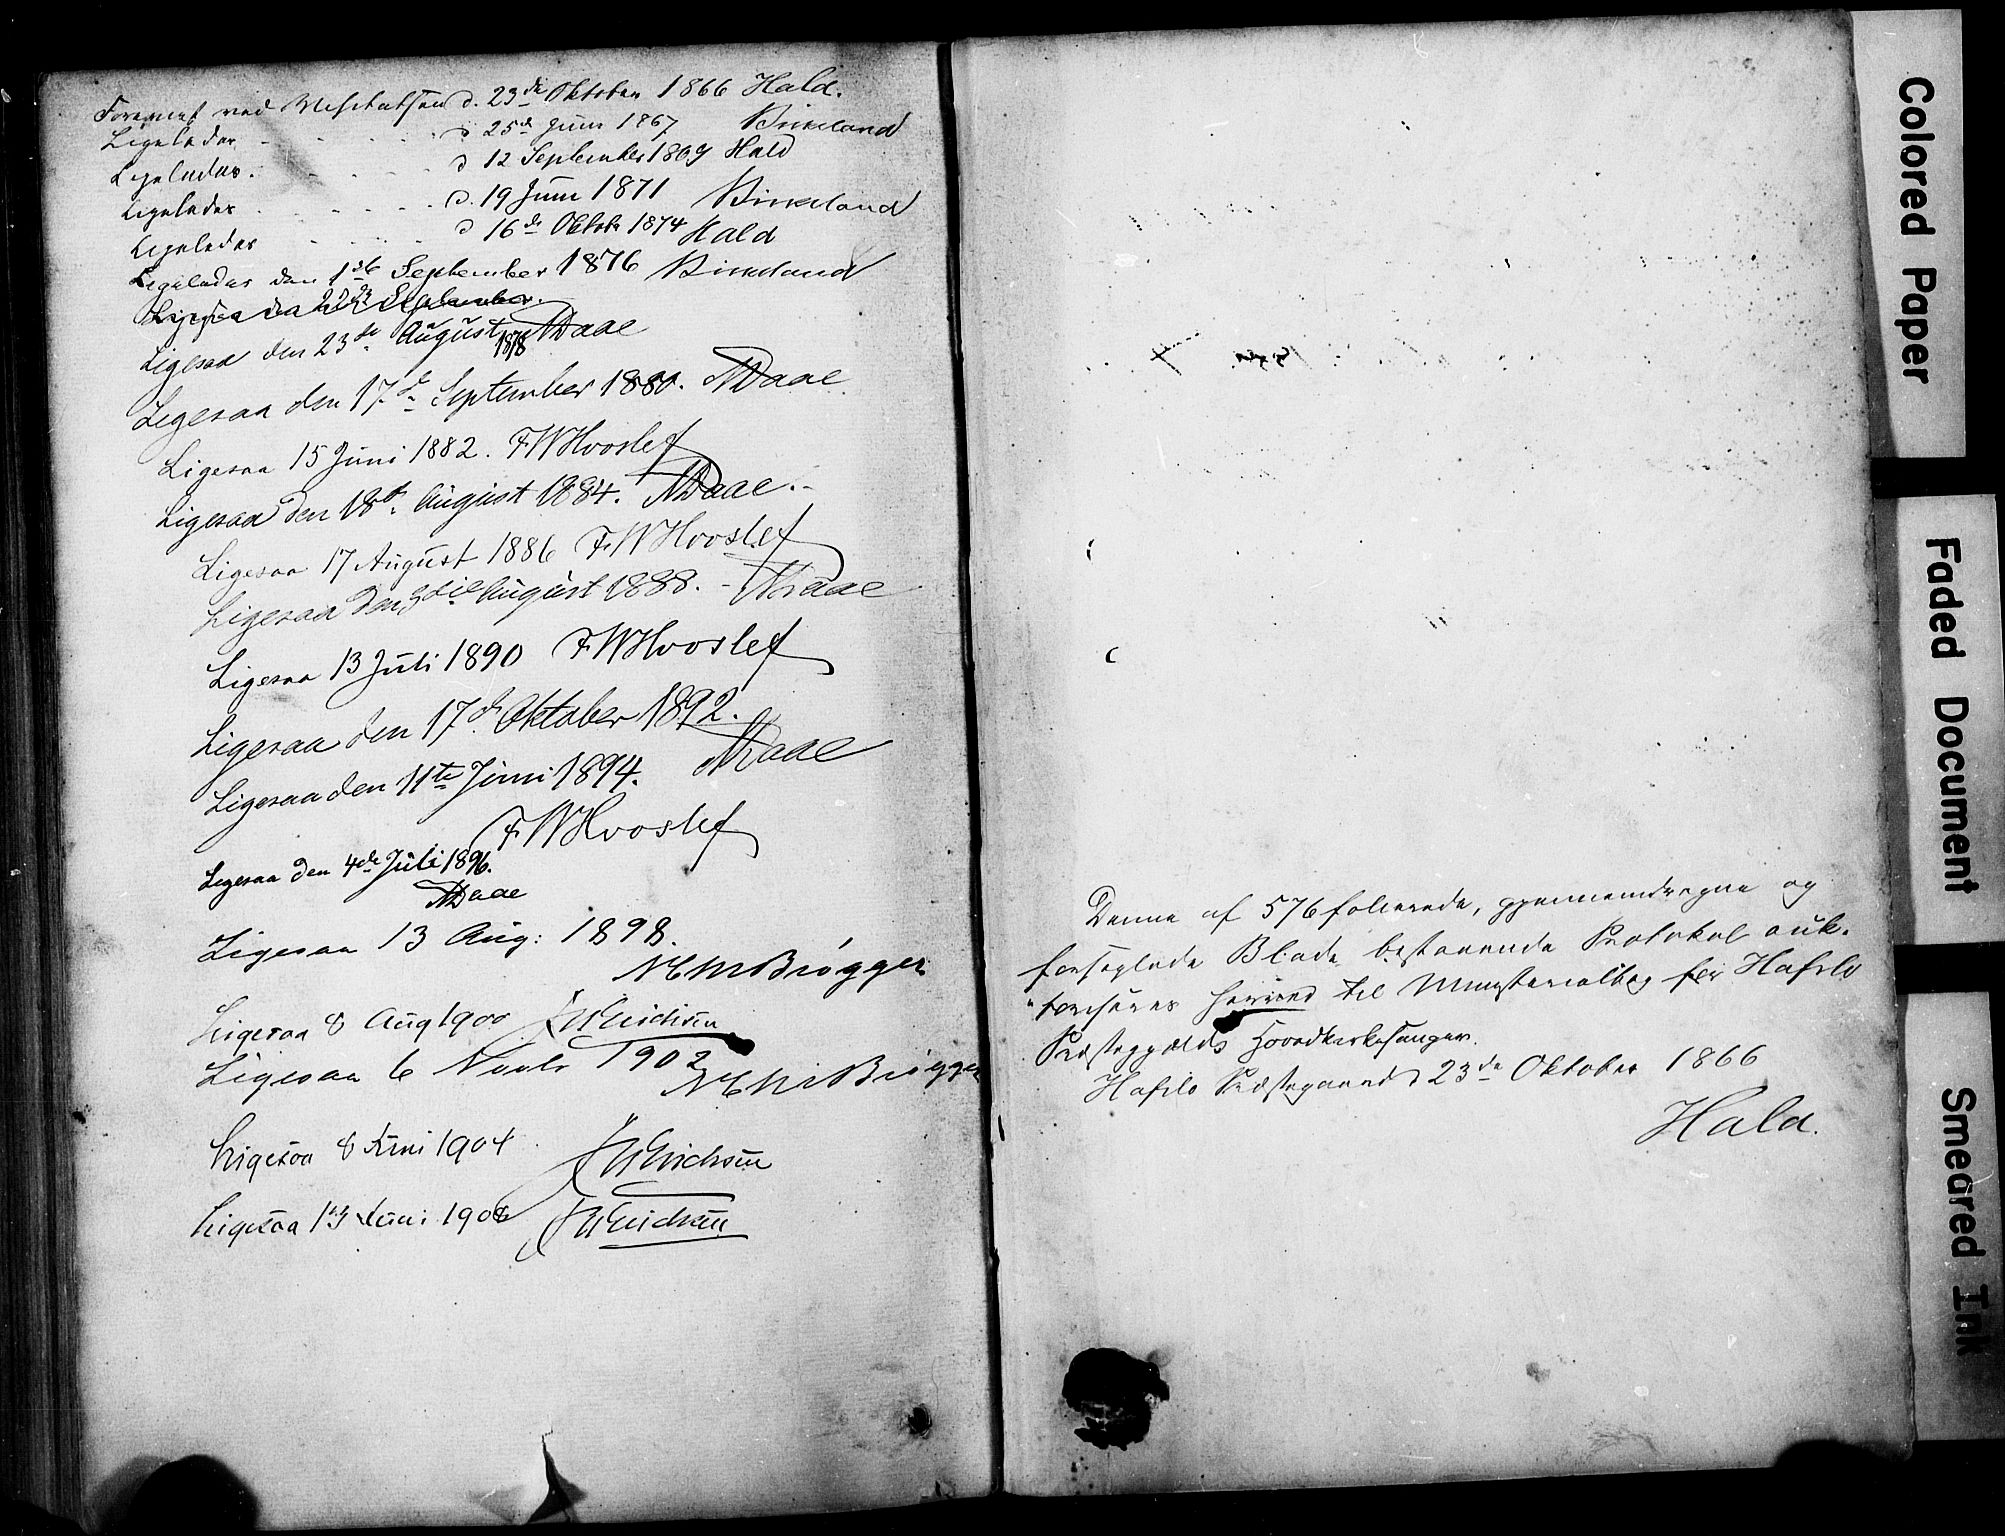 Forevist ved Visitatsen d. 23de Oktober 1866 Hald.
Ligeledes d 25de Juni 1867 Birkeland
Ligeledes. d 12 September 1869 Hald
Ligeledes d. 19 Juni 1871 Birkeland
Ligeledes d 16de Oktobr 1874 Hald
Ligeledes den 1ste September 1876 Birkeland
Ligesaa den 22de September.
Ligesaa den 23de August 1878 Daae
Ligesaa den 17de September 1880. Daae
Ligesaa 15 Juni 1882. FWHvoslef
Ligesaa den 18de August 1884. Daae.
Ligesaa 17 August 1886 FWHvoslef
Ligesaa den August 1888. - Daae
Ligesaa 13 Juli 1890 FWHvoslef
Ligesaa den 17de Oktober 1892.
Daae
Ligesaa den 11te Juni 1894.
FWHvoslef
Ligesaa den 4de Juli 1896.
Daae
Ligesaa 13 Aug: 1898.
Brøgger
Ligesaa 8 Aug 1900 Erichsen
Ligesaa 6 1902 Brøgger
Ligesaa 8 Juni 1904
Erichsen
Ligesaa 13 Juni Erichsen
Denne af 576 folierede, gjennemdragne og
forseglede Blade bestaaende Protokol auk-
"toriseres herved til Ministerialbog for Hafslo
Præstegjælds Hovedkirkesanger.
Hafslo Præstegaard d 23de Oktober 1866
Hald.
Colored Paper
Faded Document
Smeared Ink